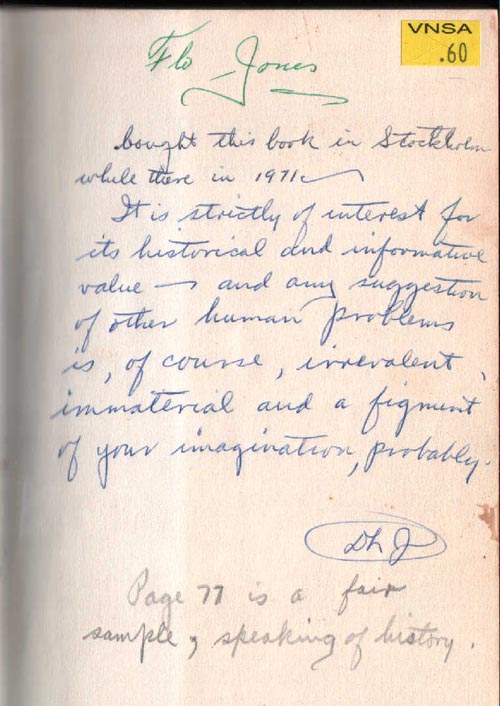 VNSA
.60
Flo Jones
bought this book in Stockholm
while there in 1971
It is strictly of interest for
its historical and informative
value — and any suggestion
of other human problems
is, of course, irrevalent,
immaterial and a figment
of your imagination, probably.
DhJ
Page 77 is a fair
sample, speaking of history.